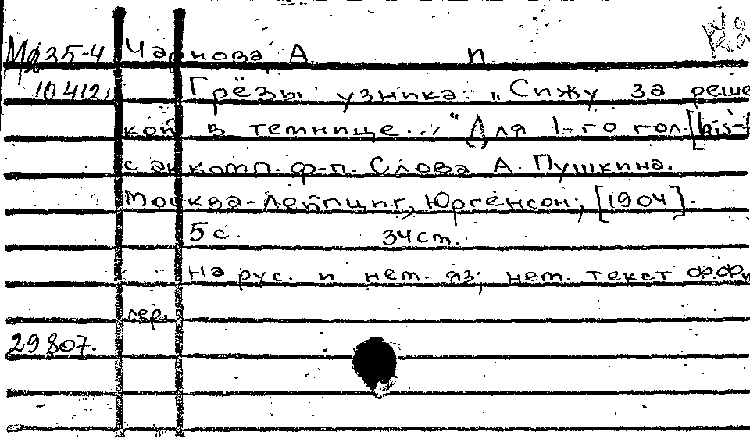 М235-4 Чарнова А п
10412 Грёзы узника. „Сижу за реше
кой в темнице..." Для 1-го гол. [bis-
с аккомп. ф-п. Слова А. Пушкина.
Москва-Лейпциг, Юргенсон, [1904].
5 с. 34 cm.
На рус. и нем. яз; нем. текст
пер.
29807.